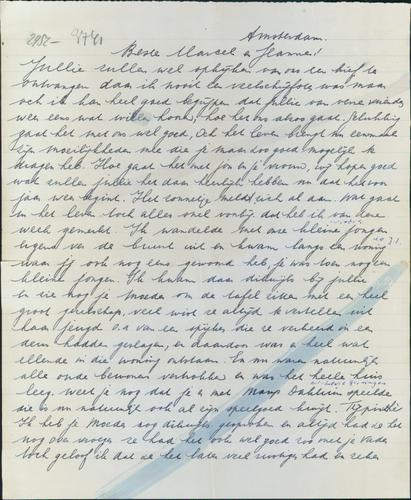 2952 – 9/741
Amsterdam.
Beste Marcel en Hanne!
Jullie zullen wel opkijken van ons een brief te
ontvangen daar ik nooit een veelschrijfster was maar
och ik kan heel goed begrijpen dat jullie van oude vrienden
weer eens wat willen horen, hoe het ons alzoo gaat. Gelukkig
gaat het met ons wel goed, Och het leven brengt nu eenmaal
zijn moeilijkheden mee die je maar zoo goed mogelijk te
dragen heb. Hoe gaat het met jou en je vrouw, wij hopen goed
wat zullen jullie het daar heerlijk hebben nu dat het voor
jaar weer begint. Het zonnetje meldt zich al aan. Wat gaat
in het leven toch alles snel voorbij dat heb ik van deze
week gemerkt. Ik wandelde met onze kleine jongen
ergens van de buurt uit en kwam langs een woning
waar jij ook nog eens gewoond heb, je was toen nog een
kleine jongen. Ik kwam daar dikwijls bij jullie
en zie nog je Moeder om de tafel zitten met een heel
groot gezelschap, veel wist ze altijd te vertellen uit
haar jeugd o.a. van een spijker die ze verkeerd in een
deur hadden geslagen, en daardoor was er heel wat
ellende in die woning ontstaan. En nu waren natuurlijk
alle oude bewoners vertrokken en was het heele huis
leeg. Weet je nog dat je er met Maup speelde
die is nu natuurlijk ook al zijn speelgoed kwijt.
Ik heb je Moeder nog dikwijls gesproken en altijd had ze het
nog over vroeger ze had het ook wel goed zoo met je Vader
toch geloof ik dat ze het later veel rustiger had en zeker